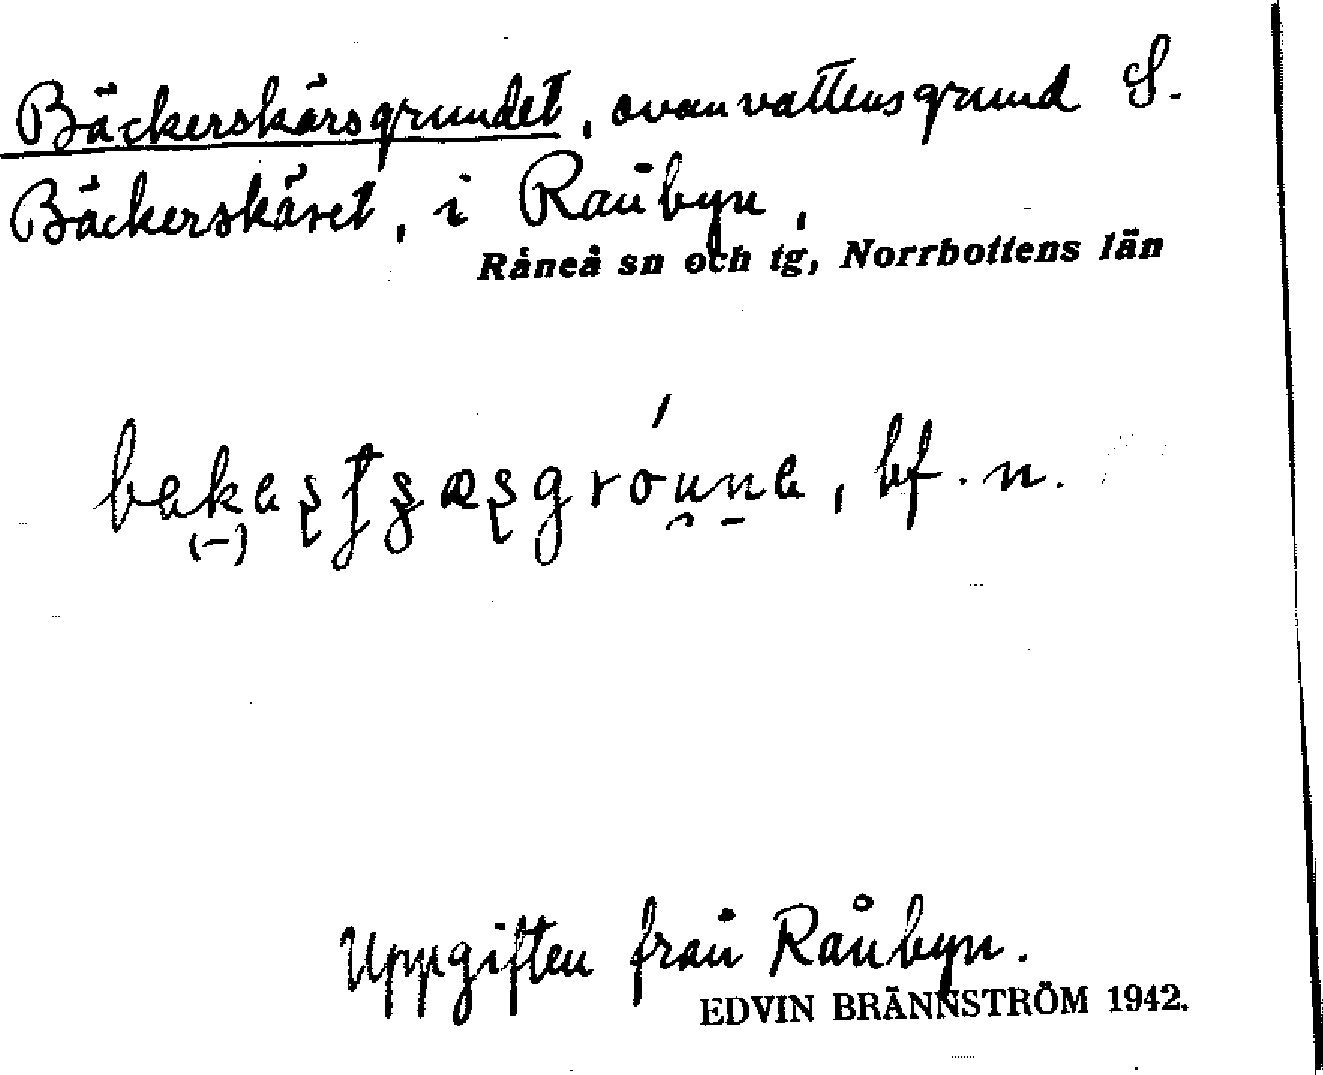 Bäckerskärsgrundet, ovanvattensgrund S.
Bäckerskäret, i Rånbyn,
Råneå sn och tg, Norrbottens län
bf. n.
Uppgiften från Rånbyn.
EDVIN BRÄNNSTRÖM 1942.